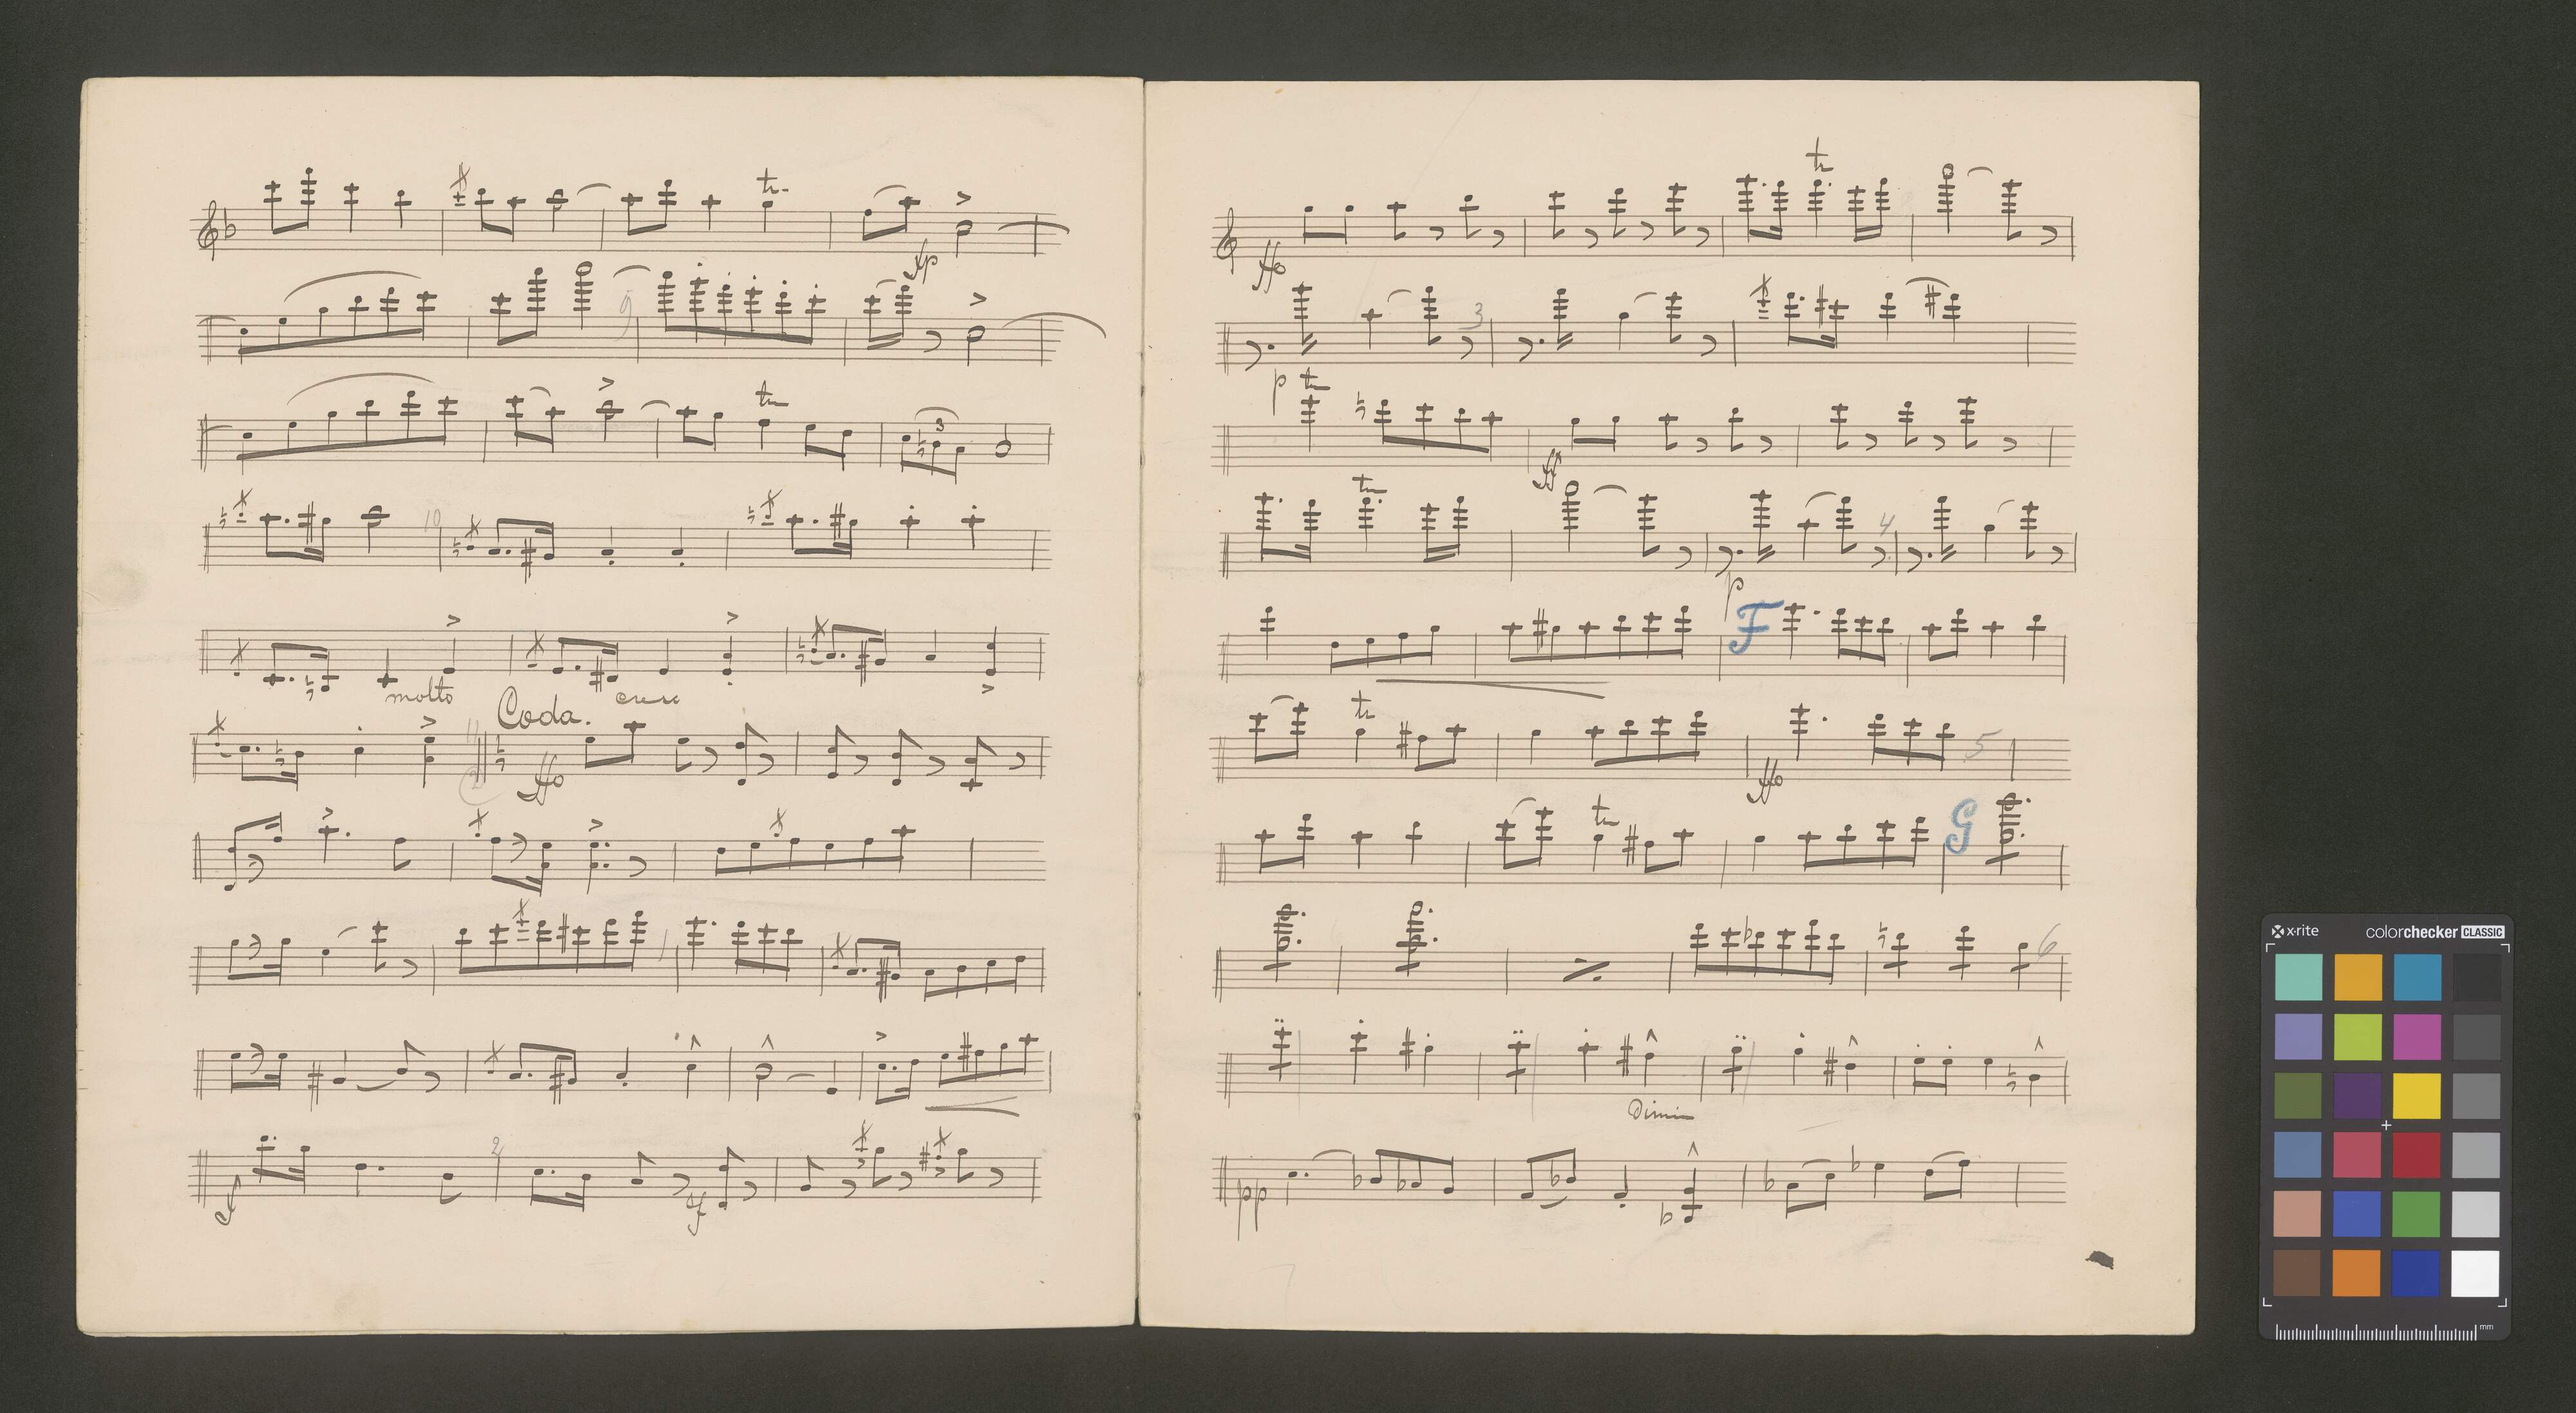 tr
fp
9
tr
3
10
molto
cresc
Coda.
11
2
ffo
1
2
f
sf
tr
ffo
3
p
tr
ff
tr
4
p
F
tr
5
ffo
tr
G
6
Dimin
pp
7
x-rite
colorchecker CLASSIC
mm